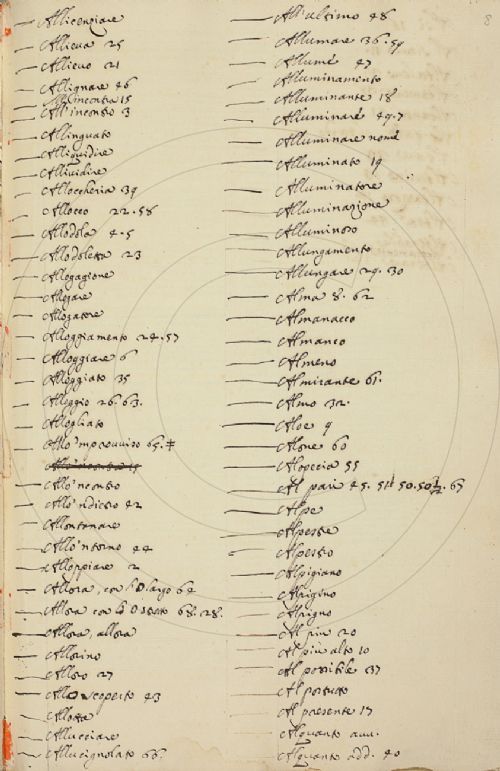 Allicenziare
Allieua 25
Allieuo 21
Allignare 46
All'incontra 15
All'incontro 3
Allinguato
Alliquidire
Alliuidire
Alloccheria 39
Allocco 22.58
Allodola 4.5
Allodoletta 23
Allogagione
Allogare
Allogatore
Alloggiamento 24.57
Alloggiare 6
Alloggiato 35
Alloggio 26.63.
Allogliato
All'improuuiso 65.
All'incontro
All'indietro 42
Allontanare
All'intorno 44
Alloppiare 2
Allora, con l'O largo 64
Allora con l'O stretto 68.28.
Allora, allora
Allorino
Alloro 27
Allo scoperto 43
Allotta
Allucciare
Allucignolato 66.
All'ultimo 48
8
Allumare 36.59
Allume 47
Alluminamento
Alluminante 18
Alluminare 49.7
Alluminare nome
Alluminato 19
Alluminatore
Alluminazione
Alluminoso
Allungamento
Allungare 29.30
Alma 8.62
Almanacco
Almanco
Almeno
Almirante 61.
Almo 32.
Aloe 9
Alone 60
Alopecia 55
Al pari 45. 51 50.50 1/2. 67
Alpe
Alpestre
Alpestro
Alpigiano
Alpigino
Alpigno
Al piu 20
Al piu alto 10
Al possibile 37
Al postutto
Al presente 17
Alquanto auu.
Alquanto add. 40